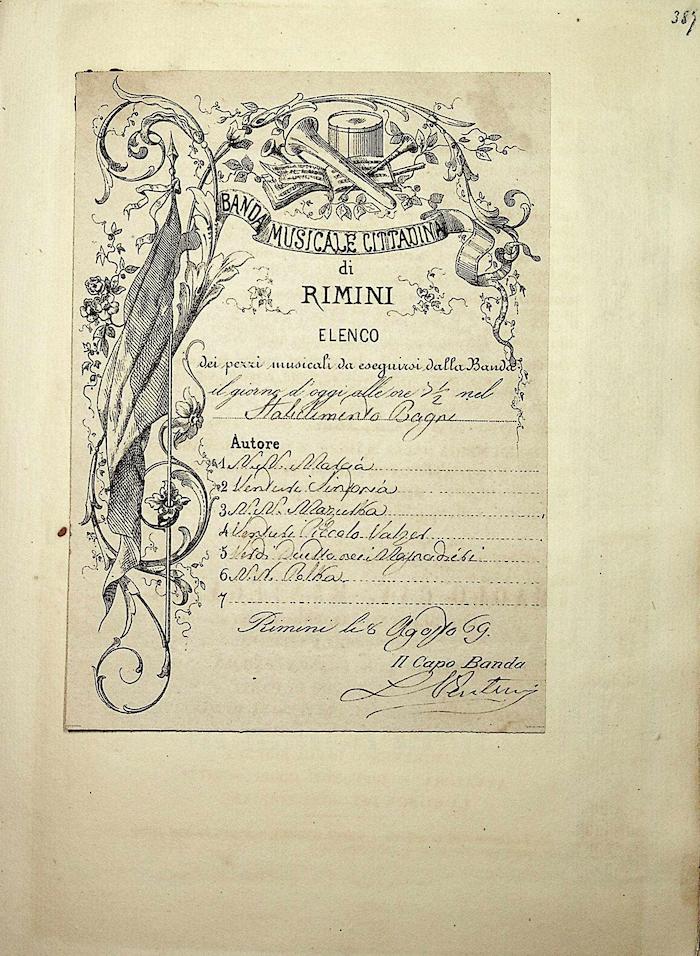 387
BANDA MUSICALE CITTADINA
di
RIMINI
ELENCO
dei pezzi musicali da eseguirsi dalla Banda
il giorno d'oggi alle ore 5 1/2 nel
Stabilimento Bagni
Autore
1 N.N. Marcia
2 Venturi Sinfonia
3 N.N. Mazurka
4 Venturi Piccolo Valzer
5 Verdi Duetto nei Masnadieri
6 N.N. Polka
7
Rimini li 8 Agosto 69.
Il Capo Banda
L Venturi